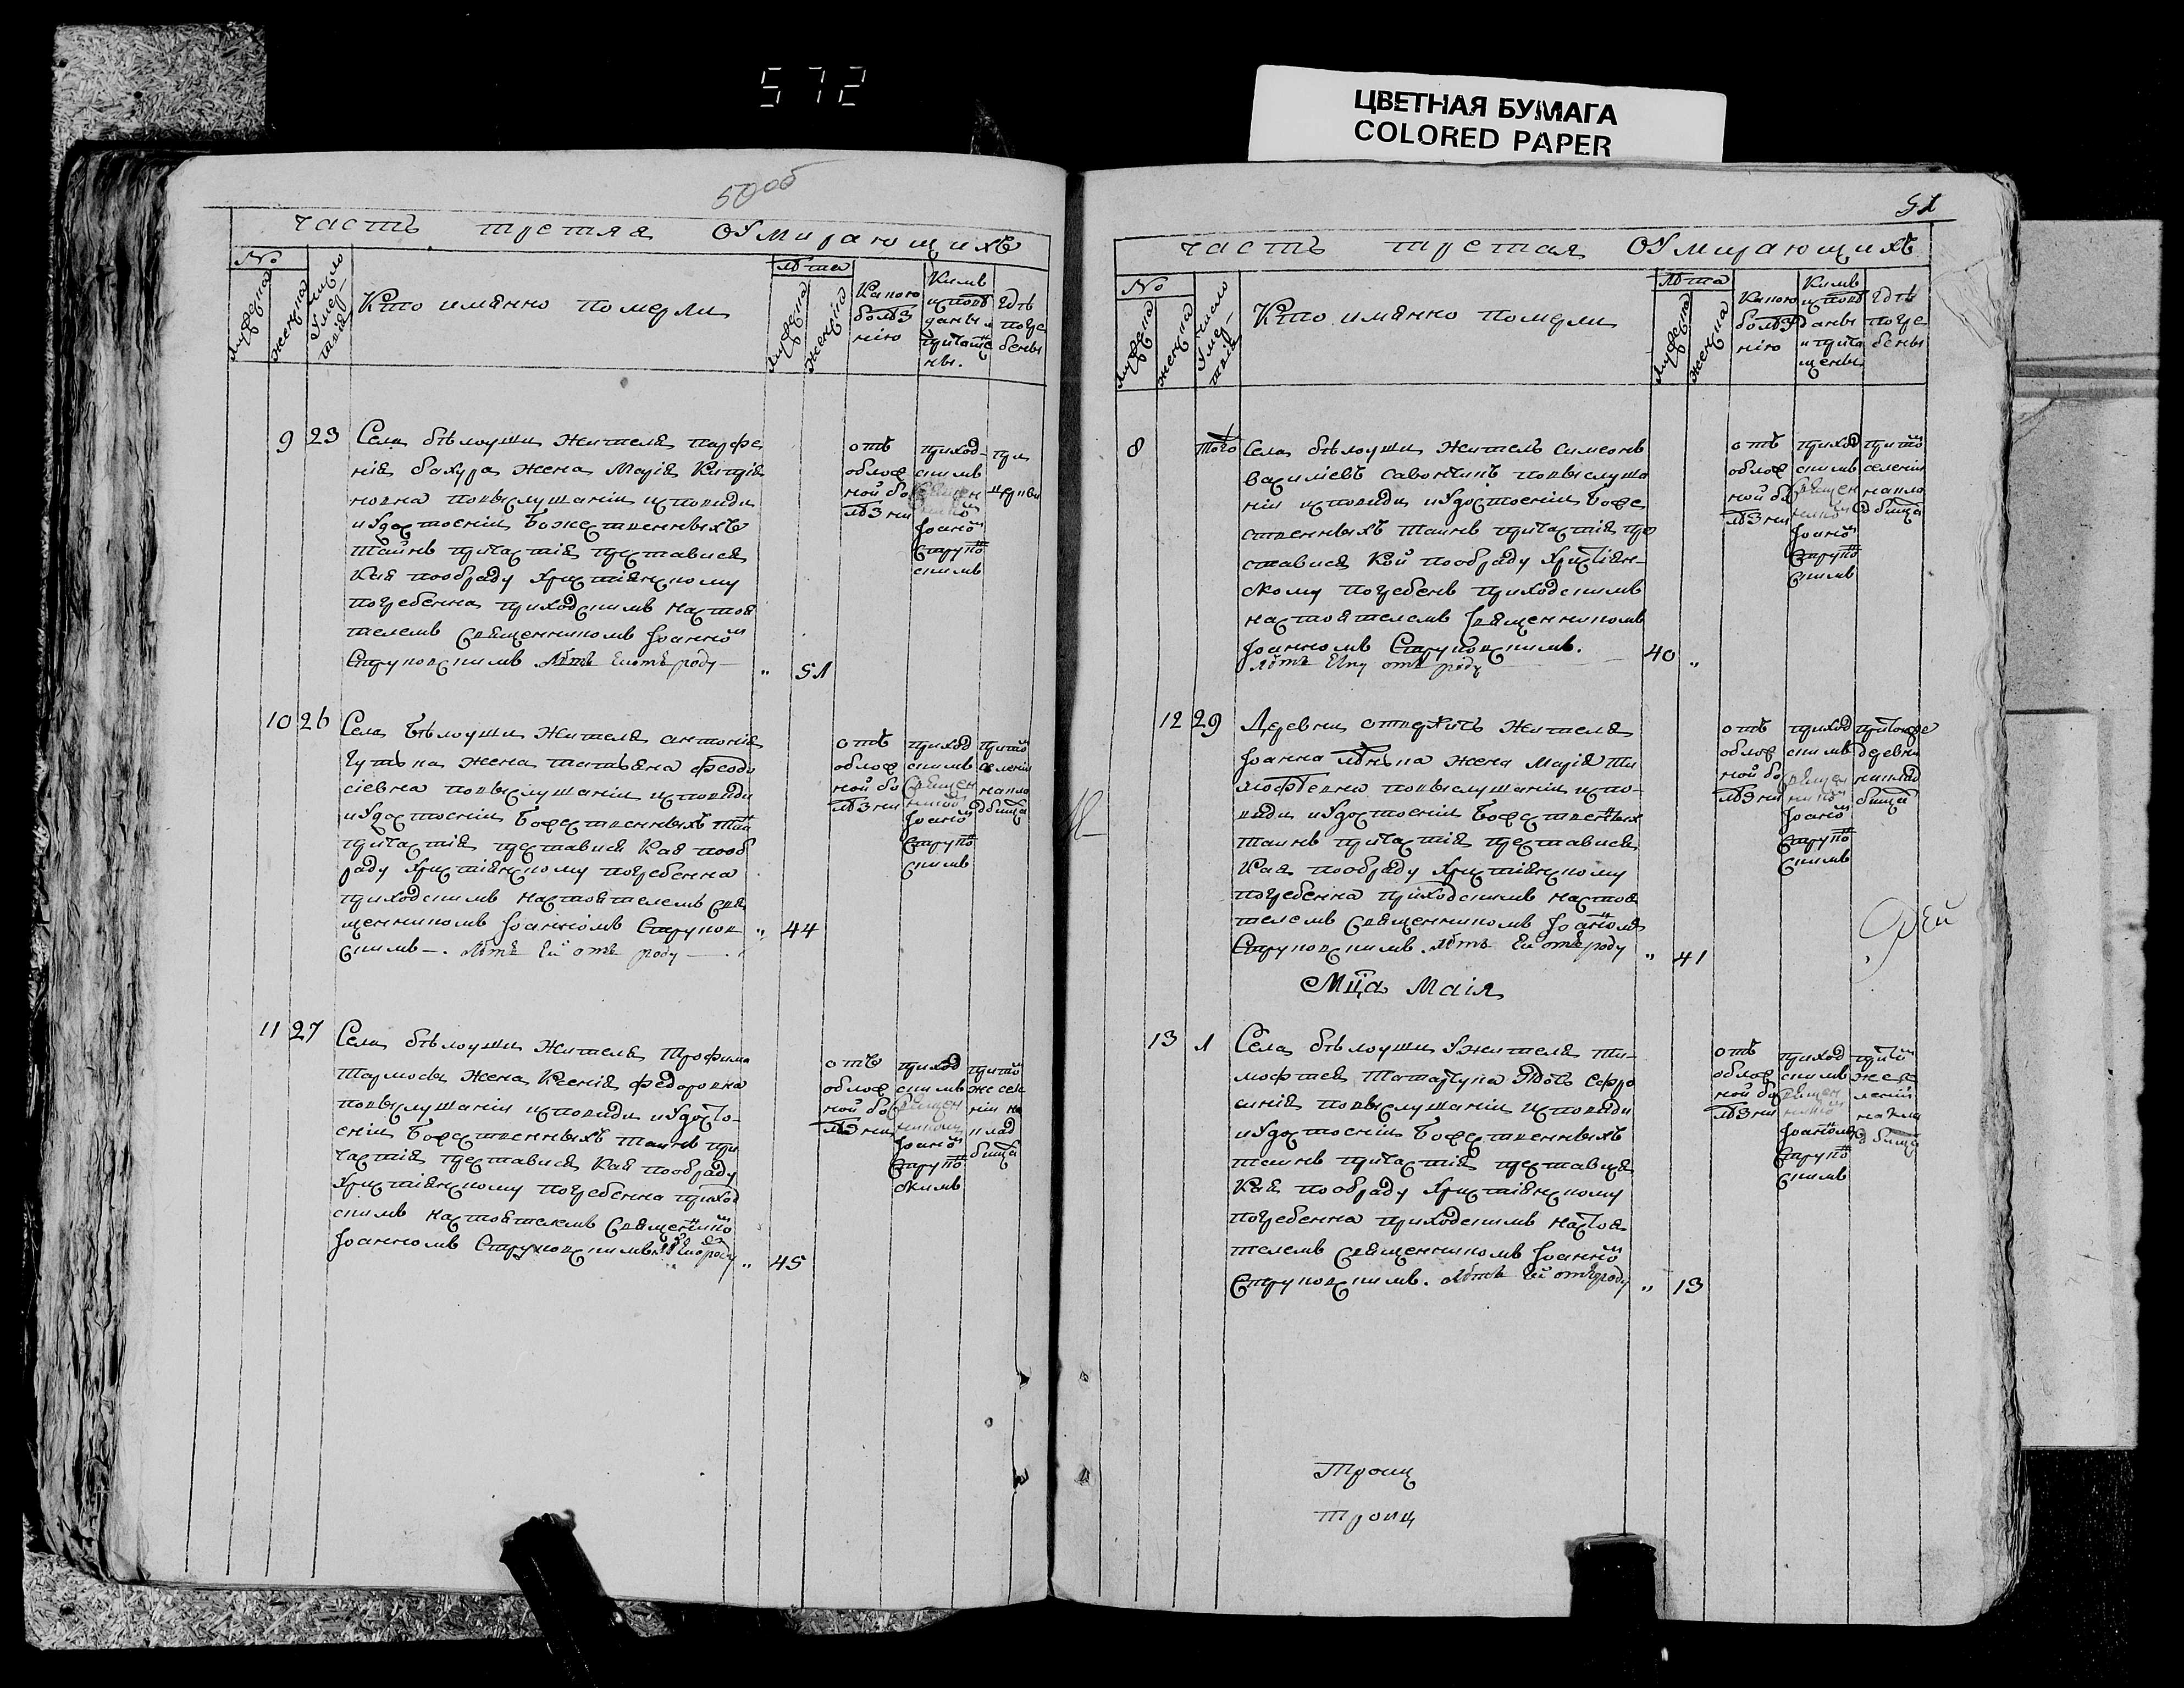 572
ЦВЕТНАЯ БУМАГА
COLORED PAPER
50 об
часть третяя ОУмирающихъ
№
мужеска
женска
число Умер-
твія
Кто имянно померли
лѣта
мужеска
женска
Какою
болѣз
нію
Кимъ
исповѣ
даны и
причаще
ны.
Гдѣ
погре
бены
9 23
Села бѣлоуши Жителя парфе
нія бахура жена Марія
повыслушаніи исповиди
и Удостоеніи Божественныхъ
Таинъ причастія преставися
Кая пообраду Християнскому
погребенна приходскимъ настоя
телемъ Священникомъ Іоанно м
Струковскимъ Лѣтъ Ей отъ роду
" 51
отъ
облож
ной бо
лѣзни
приход-
скимъ
Священ
нико м
Іоанно м
Струко в
скимъ
при
церкви
10 26
Села Бѣлоуши Жителя антонія
жена татьяна Феодо
сіевна повыслушаніи исповиди
и Удостоеніи Божественныхъ таи н
причастія преставися Кая пооб
раду Християнскому погребенна
приходскимъ настоятелемъ Свя
щенникомъ Іоанномъ Струков
скимъ. Лѣтъ Ей отъ роду
" 44
отъ
облож
ной бо
лѣзни
приход
скимъ
Священ
нико м
Іоанно м
Струко в
скимъ
при то м
селеніи
накла
дбища
11 27
Села бѣлоуши Жителя Трофима
Жена Ксенія Федоровна
повыслушаніи исповиди и Удосто-
еніи Божественныхъ таинъ при
частія преставися Кая пообраду
Християнскому погребенна приход
скимъ настоятелемъ Священнико м
Іоанномъ Струковскимъ Лѣтъ Ей отъ роду
" 45
отъ
облож
ной бо
лѣзни
приход
скимъ
Священ
нико м
Іоанно м
Струко в
скимъ
при то м
же селе
ніи на
клад
бища
51
часть третая ОУмирающихъ
№
мужеска
женска
число Умер-
твія
Кто имянно померли
лѣта
мужеска
женска
Какою
болѣз
нію
Кимъ
исповѣ
даны
и прича
щены
Гдѣ
погре
бены
8 того
Села бѣлоуши Житель Симеонъ
повыслуша
ніи исповиди и Удостоеніи Боже
ственныхъ Таинъ причастія пре
ставися Кой пообраду Християн-
скому погребенъ приходскимъ
настоятелемъ Священникомъ
Іоанномъ Струковскимъ.
Лѣтъ Ему отъ роду
40 "
отъ
облож
ной бо
лѣзни
приход
скимъ
Священ
нико м
Іоанно м
Струко в
скимъ
при то м
селеніи
накла
дбища
12 29
Деревни отвержичъ Жителя
Іоанна жена Марія Ти
мофѣевна повыслушаніи испо-
види и Удостоеніи Божественныхъ
таинъ причастія преставися
Кая пообраду Християнскому
погребенна приходскимъ настоя
телемъ Священникомъ Іоанномъ
Струковскимъ. Лѣтъ Ей отъ роду
" 41
отъ
облож
ной бо
лѣзни
приход
скимъ
Священ
нико м
Іоанно м
Струко в
скимъ
при тойже
деревни
наклад
бища
Мца Маія
13 1
Села бѣлоуши Ужителя Ти-
мофтея Татарчука дочь Ефро
синія повыслушаніи исповиди
и Удостоеніи Божественныхъ
таинъ причастія преставися
Кая пообраду Християнскому
погребенна приходскимъ настоя
телемъ Священникомъ Іоанно м
Струковскимъ. Лѣтъ Ей отъ роду
" 13
отъ
облож
ной бо
лѣзни
приход
скимъ
Священ
нико м
Іоаномъ
Струко в
скимъ
при то м
же се
леніи
накла
дбища
Троиц
троиц